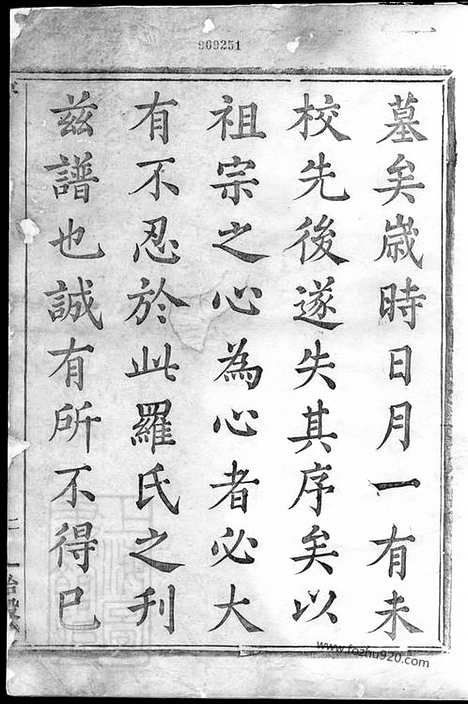 909251
墓矣歲時日月一有未
校先後遂失其序矣以
祖宗之心為心者必大
有不忍於此羅氏之刋
茲譜也誠有所不得已
www.fozhu920.com